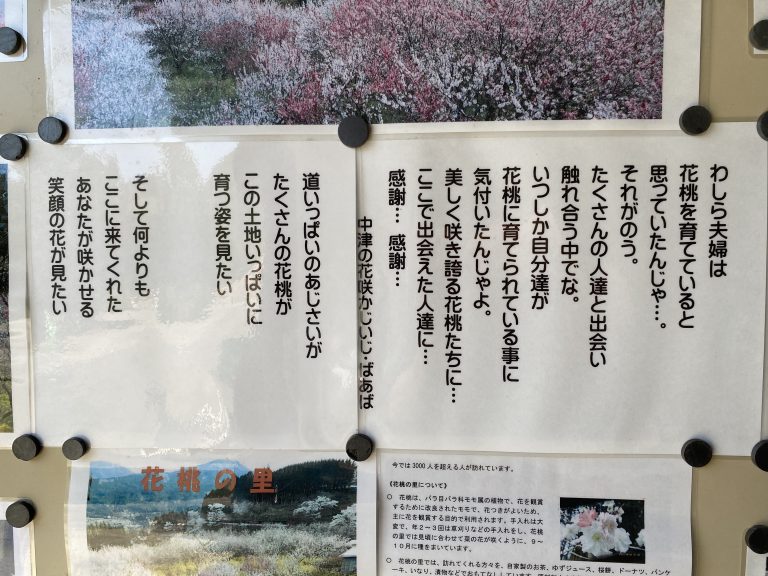 わしら夫婦は
花桃を育てていると
思っていたんじゃ…。
それがのう。
たくさんの人達と出会い
触れ合う中でな。
いつしか自分達が
花桃に育てられている事に
気付いたんじゃよ。
美しく咲き誇る花桃たちに…
ここで出会えた人達に…
感謝… 感謝…
中津の花咲かじいじ・ばあば
道いっぱいのあじさいが
たくさんの花桃が
この土地いっぱいに
育つ姿を見たい
そして何よりも
ここに来てくれた
あなたが咲かせる
笑顔の花が見たい
花桃の里
今では3000人を超える人が訪れています。
《花桃の里について》
○ 花桃は、バラ目バラ科モモ属の植物で、花を観賞
するために改良されたモモで、花つきがよいため、
主に花を観賞する目的で利用されます。手入れは大
変で、年2~3回は草刈りなどの手入れをし、花桃
の里では見頃に合わせて菜の花が咲くように、9~
10月に種をまいています。
○ 花桃の里では、訪れてくれる方々を、自家製のお茶、ゆずジュース、桜餅、ドーナツ、パンケ
ーキ、いなり、漬物などでおもてなししています。